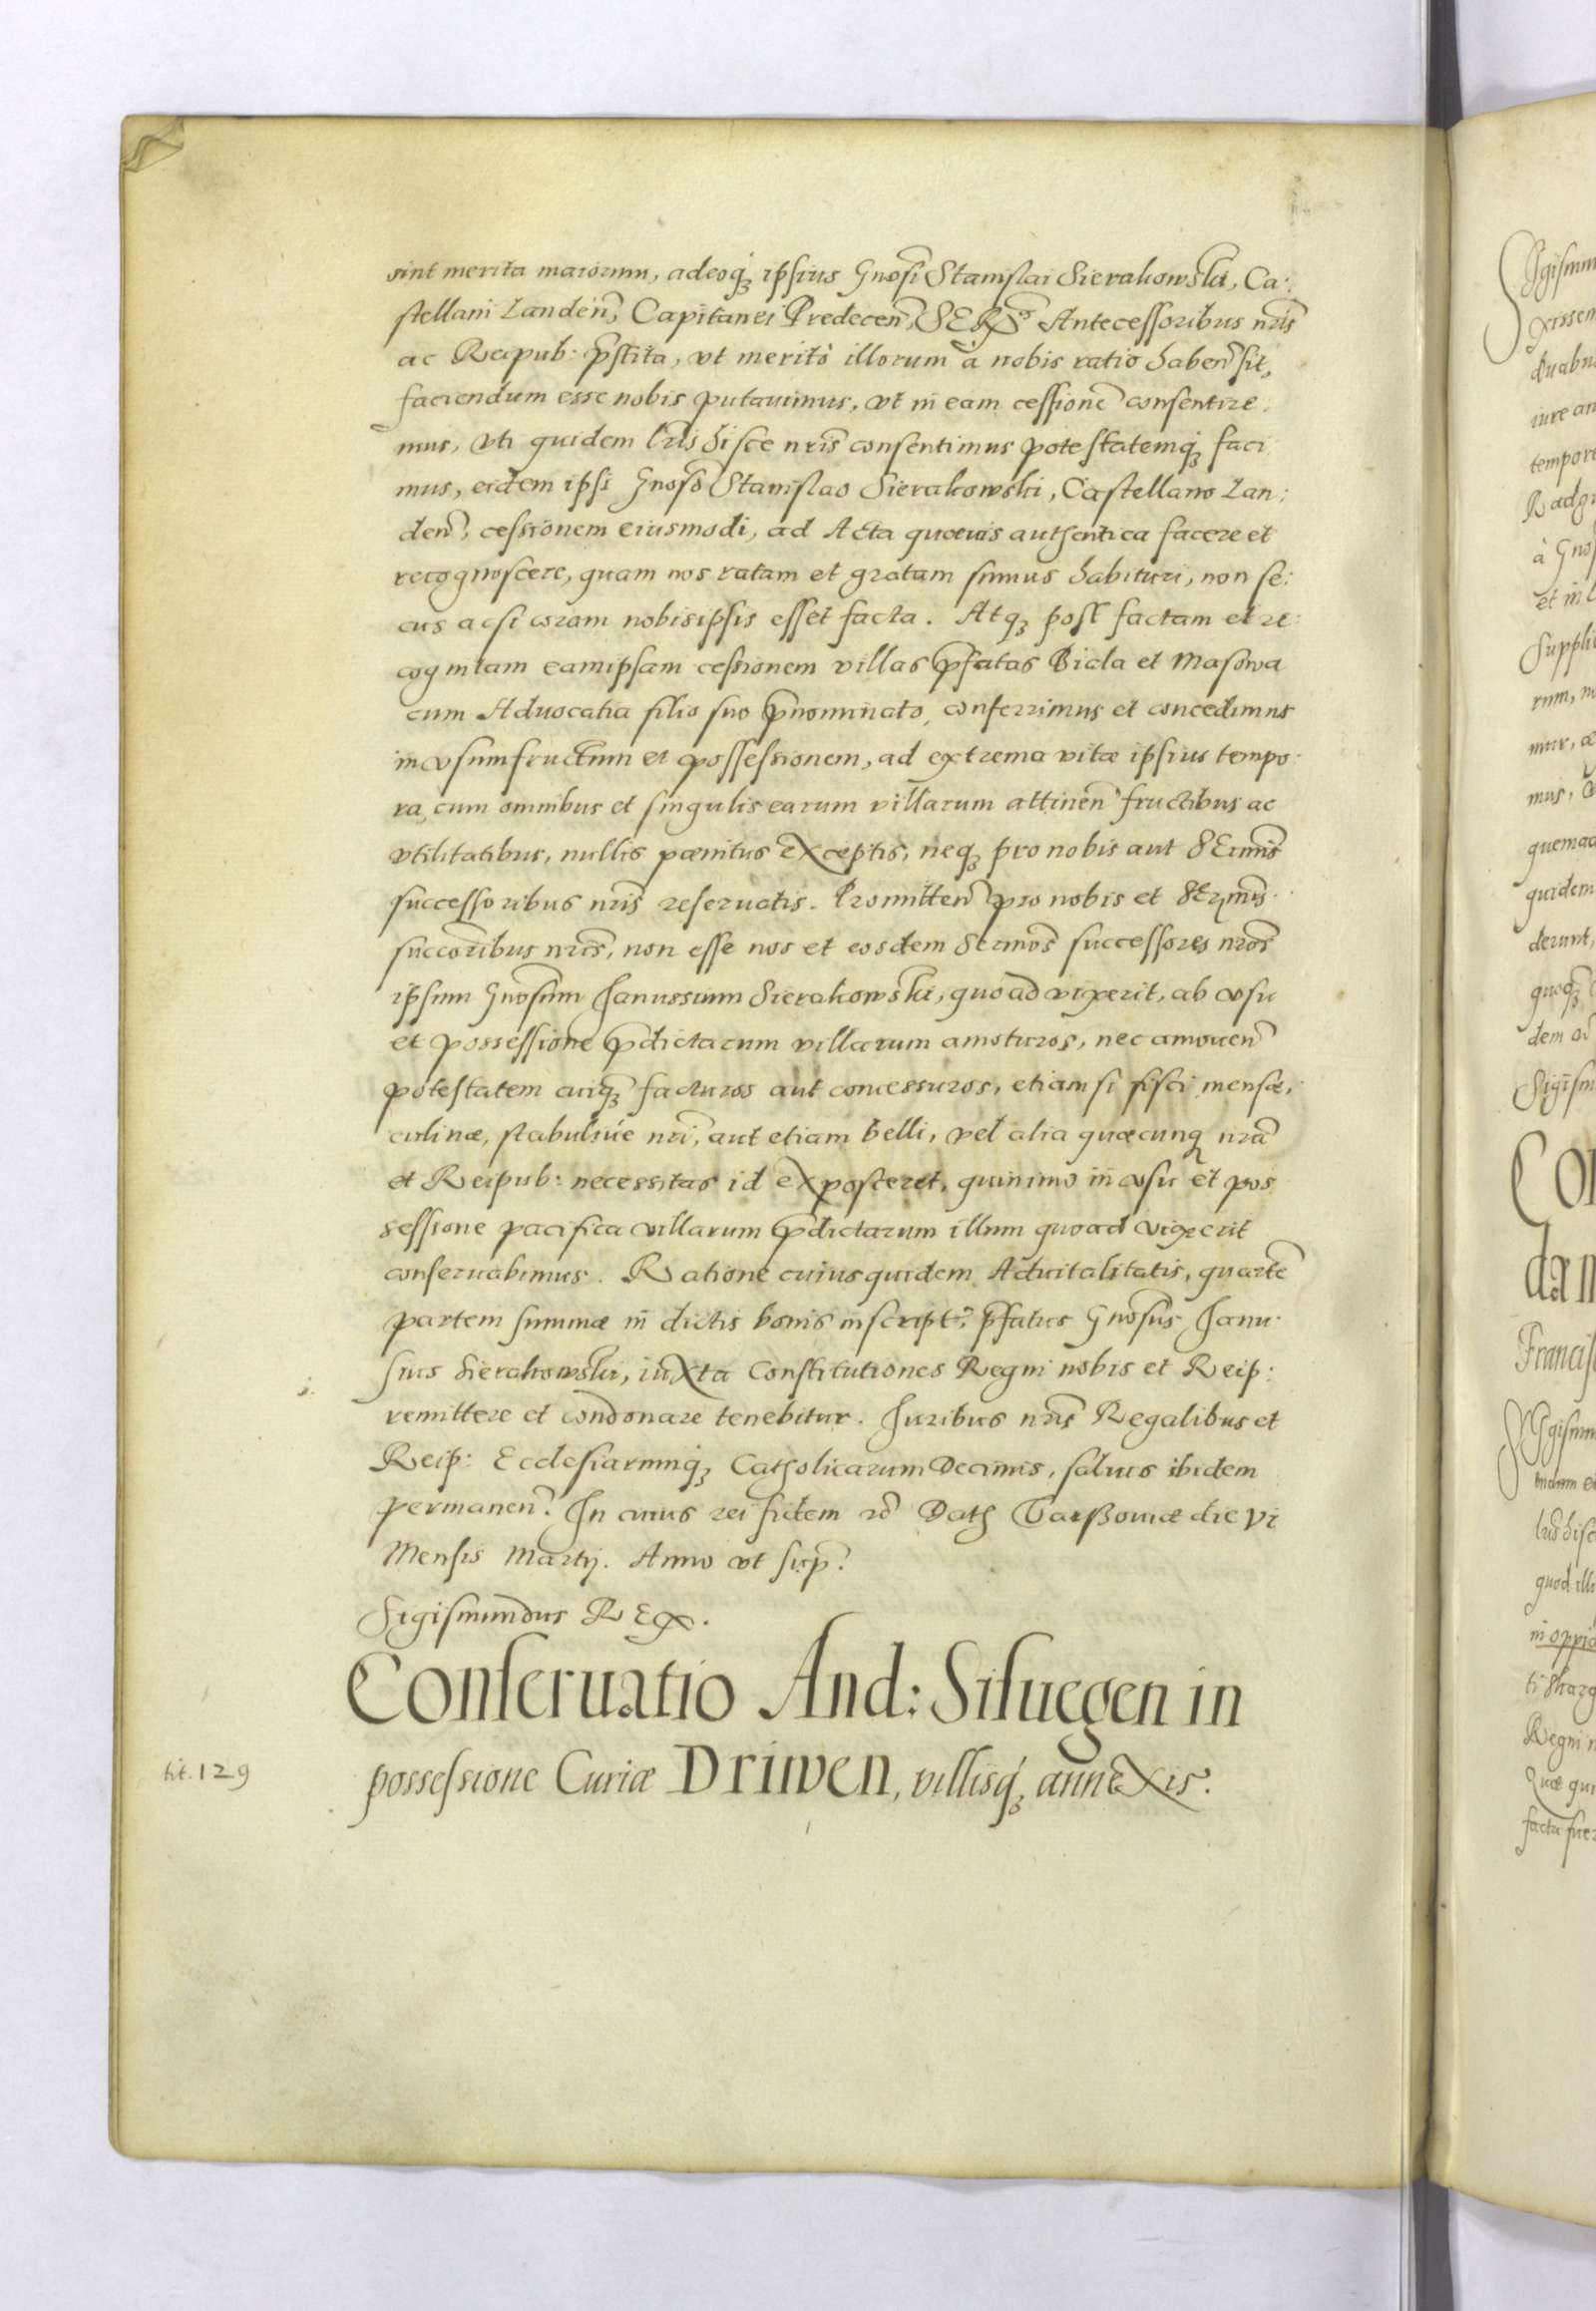 sint merita maiorum, adeoq́ꝫ ipsius Gnosi Stanislai Sierakowski, Ca:
stellani Landeñ, Capitanei Predeceñ, SERmis Antecessoribus nris
ac Reipub: pstita, vt meritò illorum à nobis ratio habeñ sit,
faciendum esse nobis putauimus, vt in eam cessione consentire
mus, Vti quidem lris hisce nris consentimus potestatemq́ꝫ faci
mus, eidem ipsi Gnoso Stanislao Sierakowski, Castellano Lan:
deñ, cessionem eiusmodi, ad Acta quæuis authentica facere et
recognoscere, quam nos ratam et gratam sumus habituri, non se:
cus acsi coram nobisipsis esset facta. Atqꝫ post factam et re:
cognitam eamipsam cessionem villas pfatas Biala et Masowa
cum Aduocatia filio suo pnominato, conferrimus et concedimus
in vsumfructum et possessionem, ad extrema vitæ ipsius tempo:
ra, cum omnibus et singulis earum villarum attineñ fructibus ac
vtilitatibus, nullis pœnitus exceptis, neqꝫ pro nobis aut SErmis
successoribus nris reseruatis. Promitteñ pro nobis et SErmis
succoribus nris, non esse nos et eosdem Sermos successores nros
ipsum Gnosum Janussium Sierakowski, quoad vixerit, ab vsu
et possessione pdictarum villarum amoturos, nec amoueñ
potestatem cuiqꝫ facturos aut concessuros, etiam si fisci mensæ,
culinæ, stabuliúe nri, aut etiam belli, vel alia quæcunqꝫ nra
et Reipub: necessitas id exposceret, quinimo in vsu et pos
sessione pacifica villarum pdictarum illum quoad vixerit
conseruabimus. Ratione cuiusquidem Aduitalitatis, quarte
partem summæ in dictis bonis inscript: pfatus Gnosus Janu:
sius Sierakowski, iuxta Constitutiones Regni nobis et Reip:
remittere et condonare tenebitur. Juribus nris Regalibus et
Reip: Ecclesiarumq́ꝫ Catholicarum Decimis, saluis ibidem
permaneñ. In cuius rei fidem rc Dat Varssouiæ die VI
Mensis Martij. Anno vt sup.
Sigismundus REX.
Conseruatio And: Siluegen in
tit. 129 possessione Curiæ Driwen, villisq́ꝫ annexis.